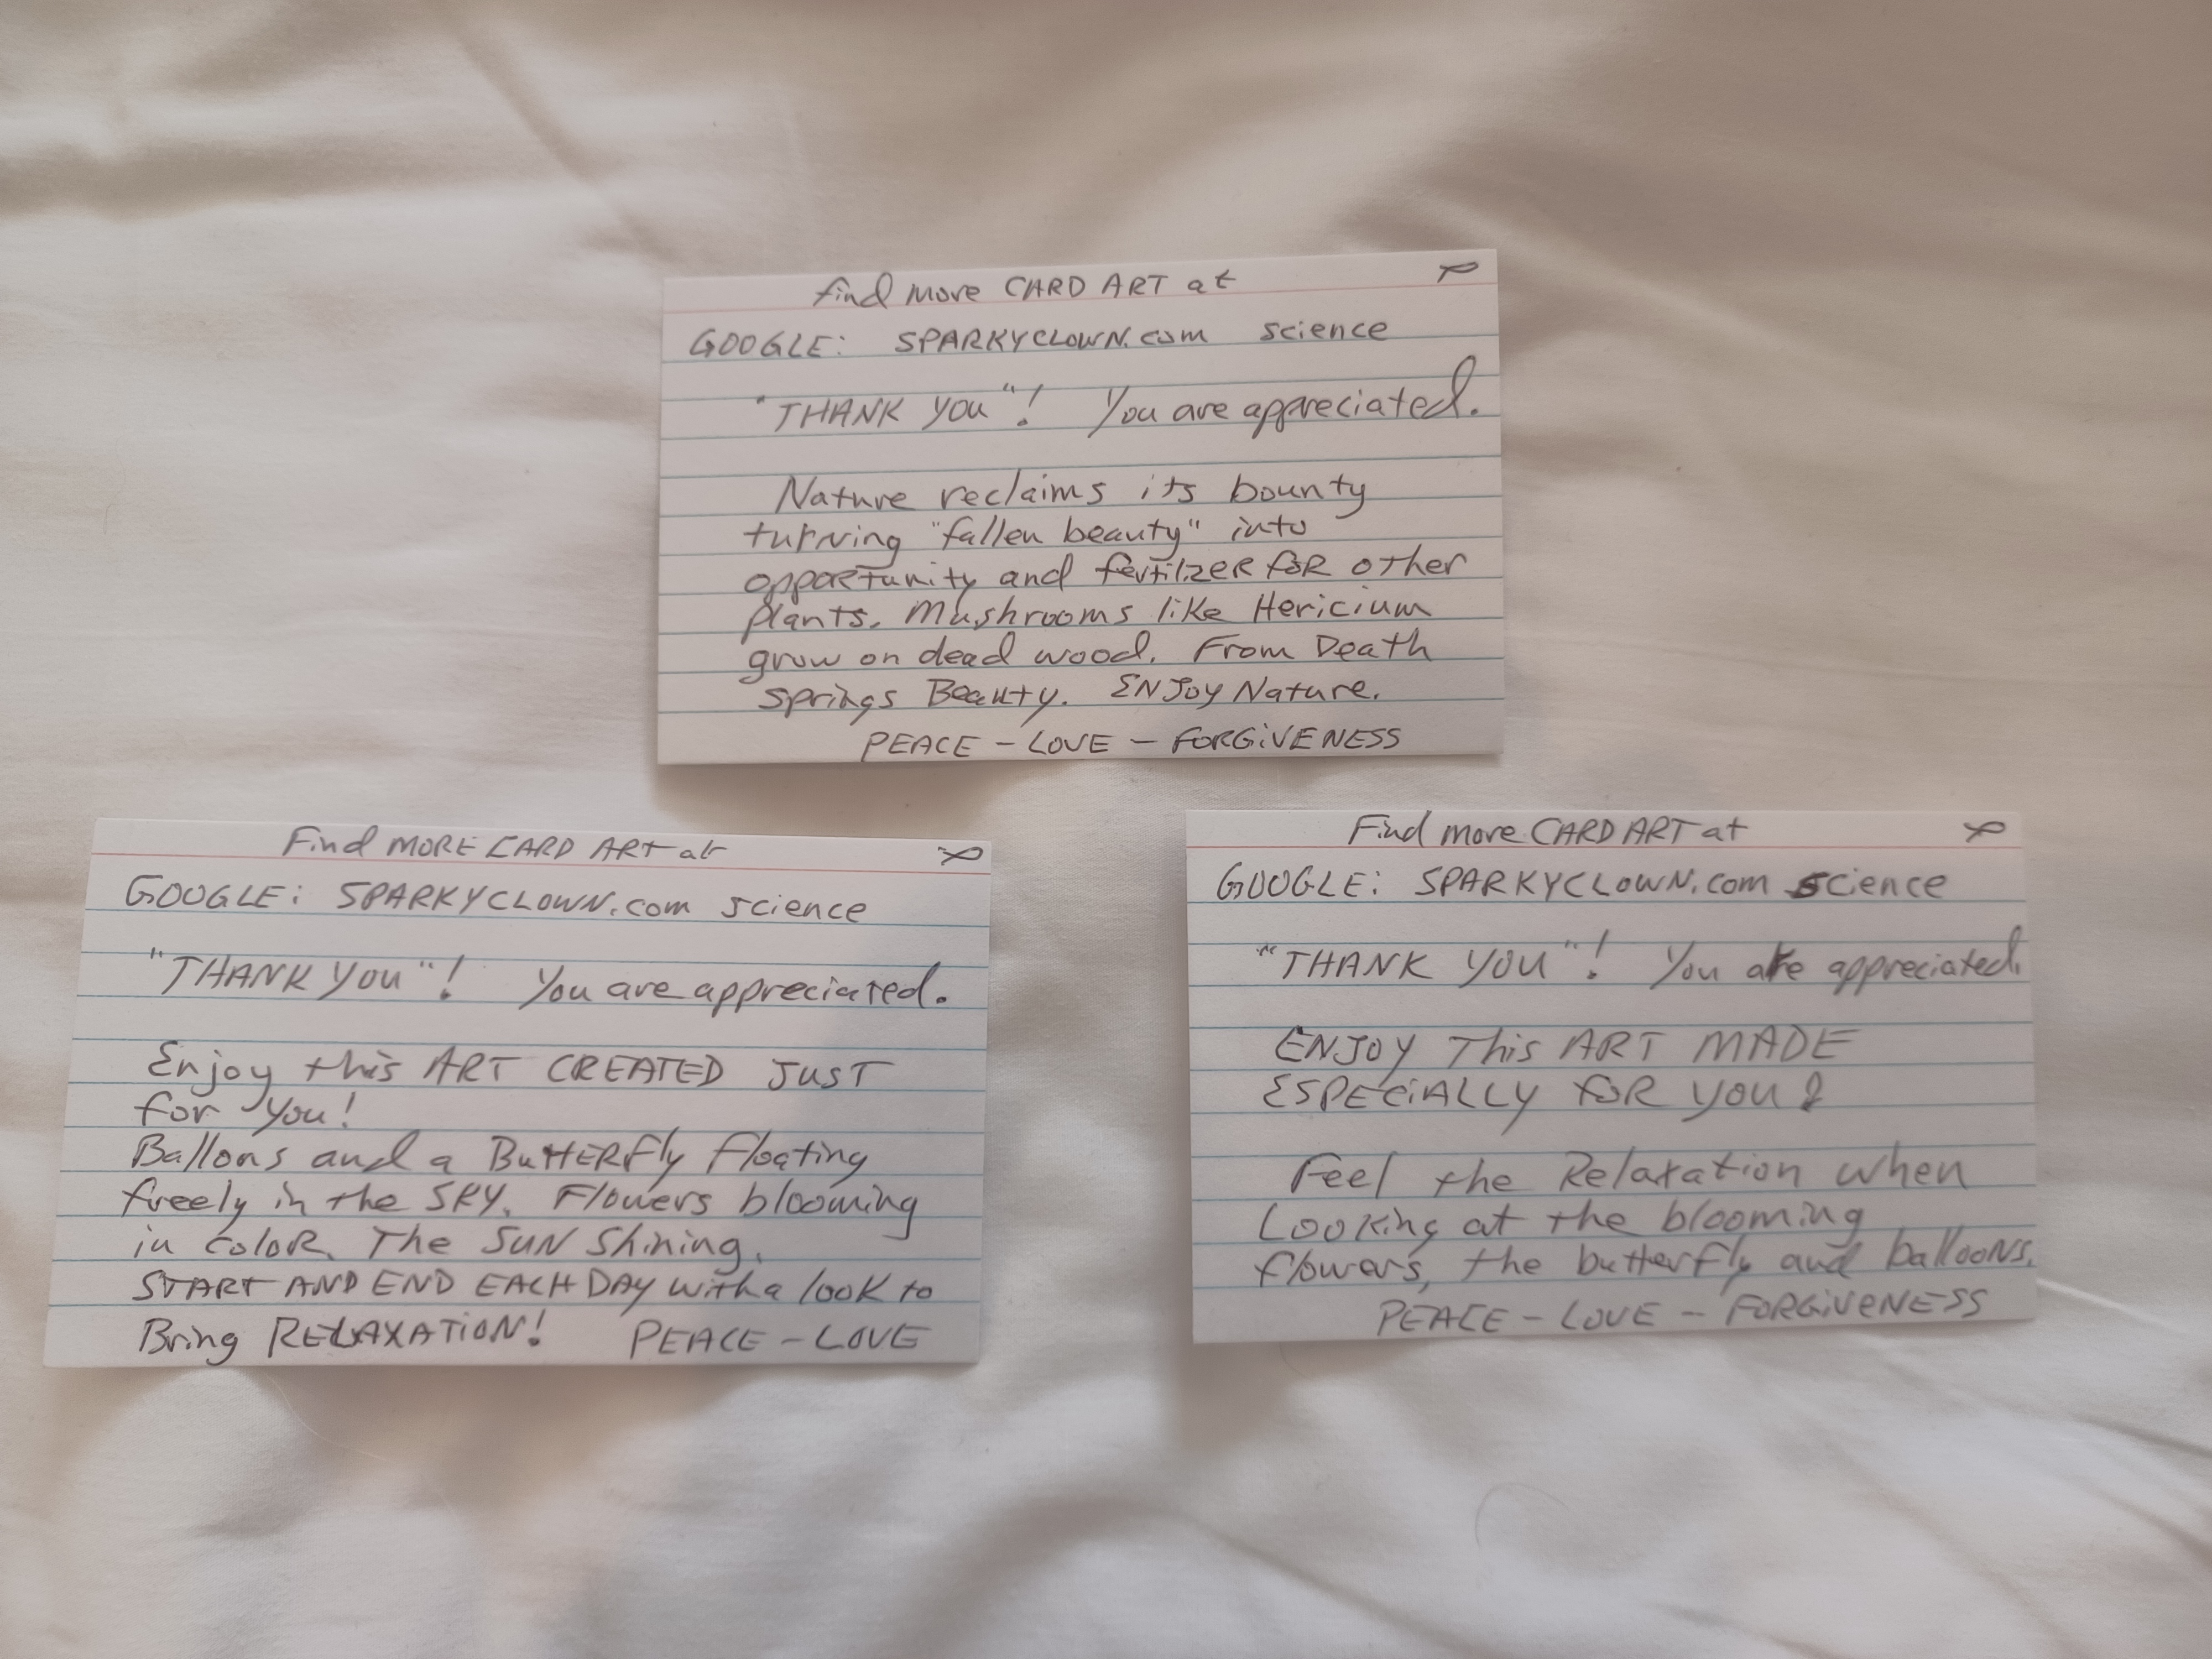 Find more CARD ART at
GOOGLE: SPARKYCLOWN.com science
"THANK YOU"! You are appreciated.
Nature reclaims its bounty
turning "fallen beauty" into
opportunity and fertilizer for other
plants. Mushrooms like Hericium
grow on dead wood. From Death
springs Beauty. ENJOY Nature.
PEACE - LOVE - FORGIVENESS
Find MORE CARD ART at
GOOGLE: SPARKYCLOWN.com science
"THANK YOU"! You are appreciated.
Enjoy this ART CREATED JUST
for you!
Ballons and a BuTTERFly floating
freely in the SKY. Flowers blooming
in coloR. The SUN Shining.
START AND END EACH DAY with a look to
Bring RELAXATION! PEACE - LOVE
Find more CARD ART at
GOOGLE: SPARKYCLOWN.com science
"THANK YOU"! You are appreciated.
ENJOY This ART MADE
ESPECiALLY foR YOU!
Feel the Relaxation when
Looking at the blooming
flowers, the butterfly and balloons.
PEACE - LOVE - FORGIVENESS